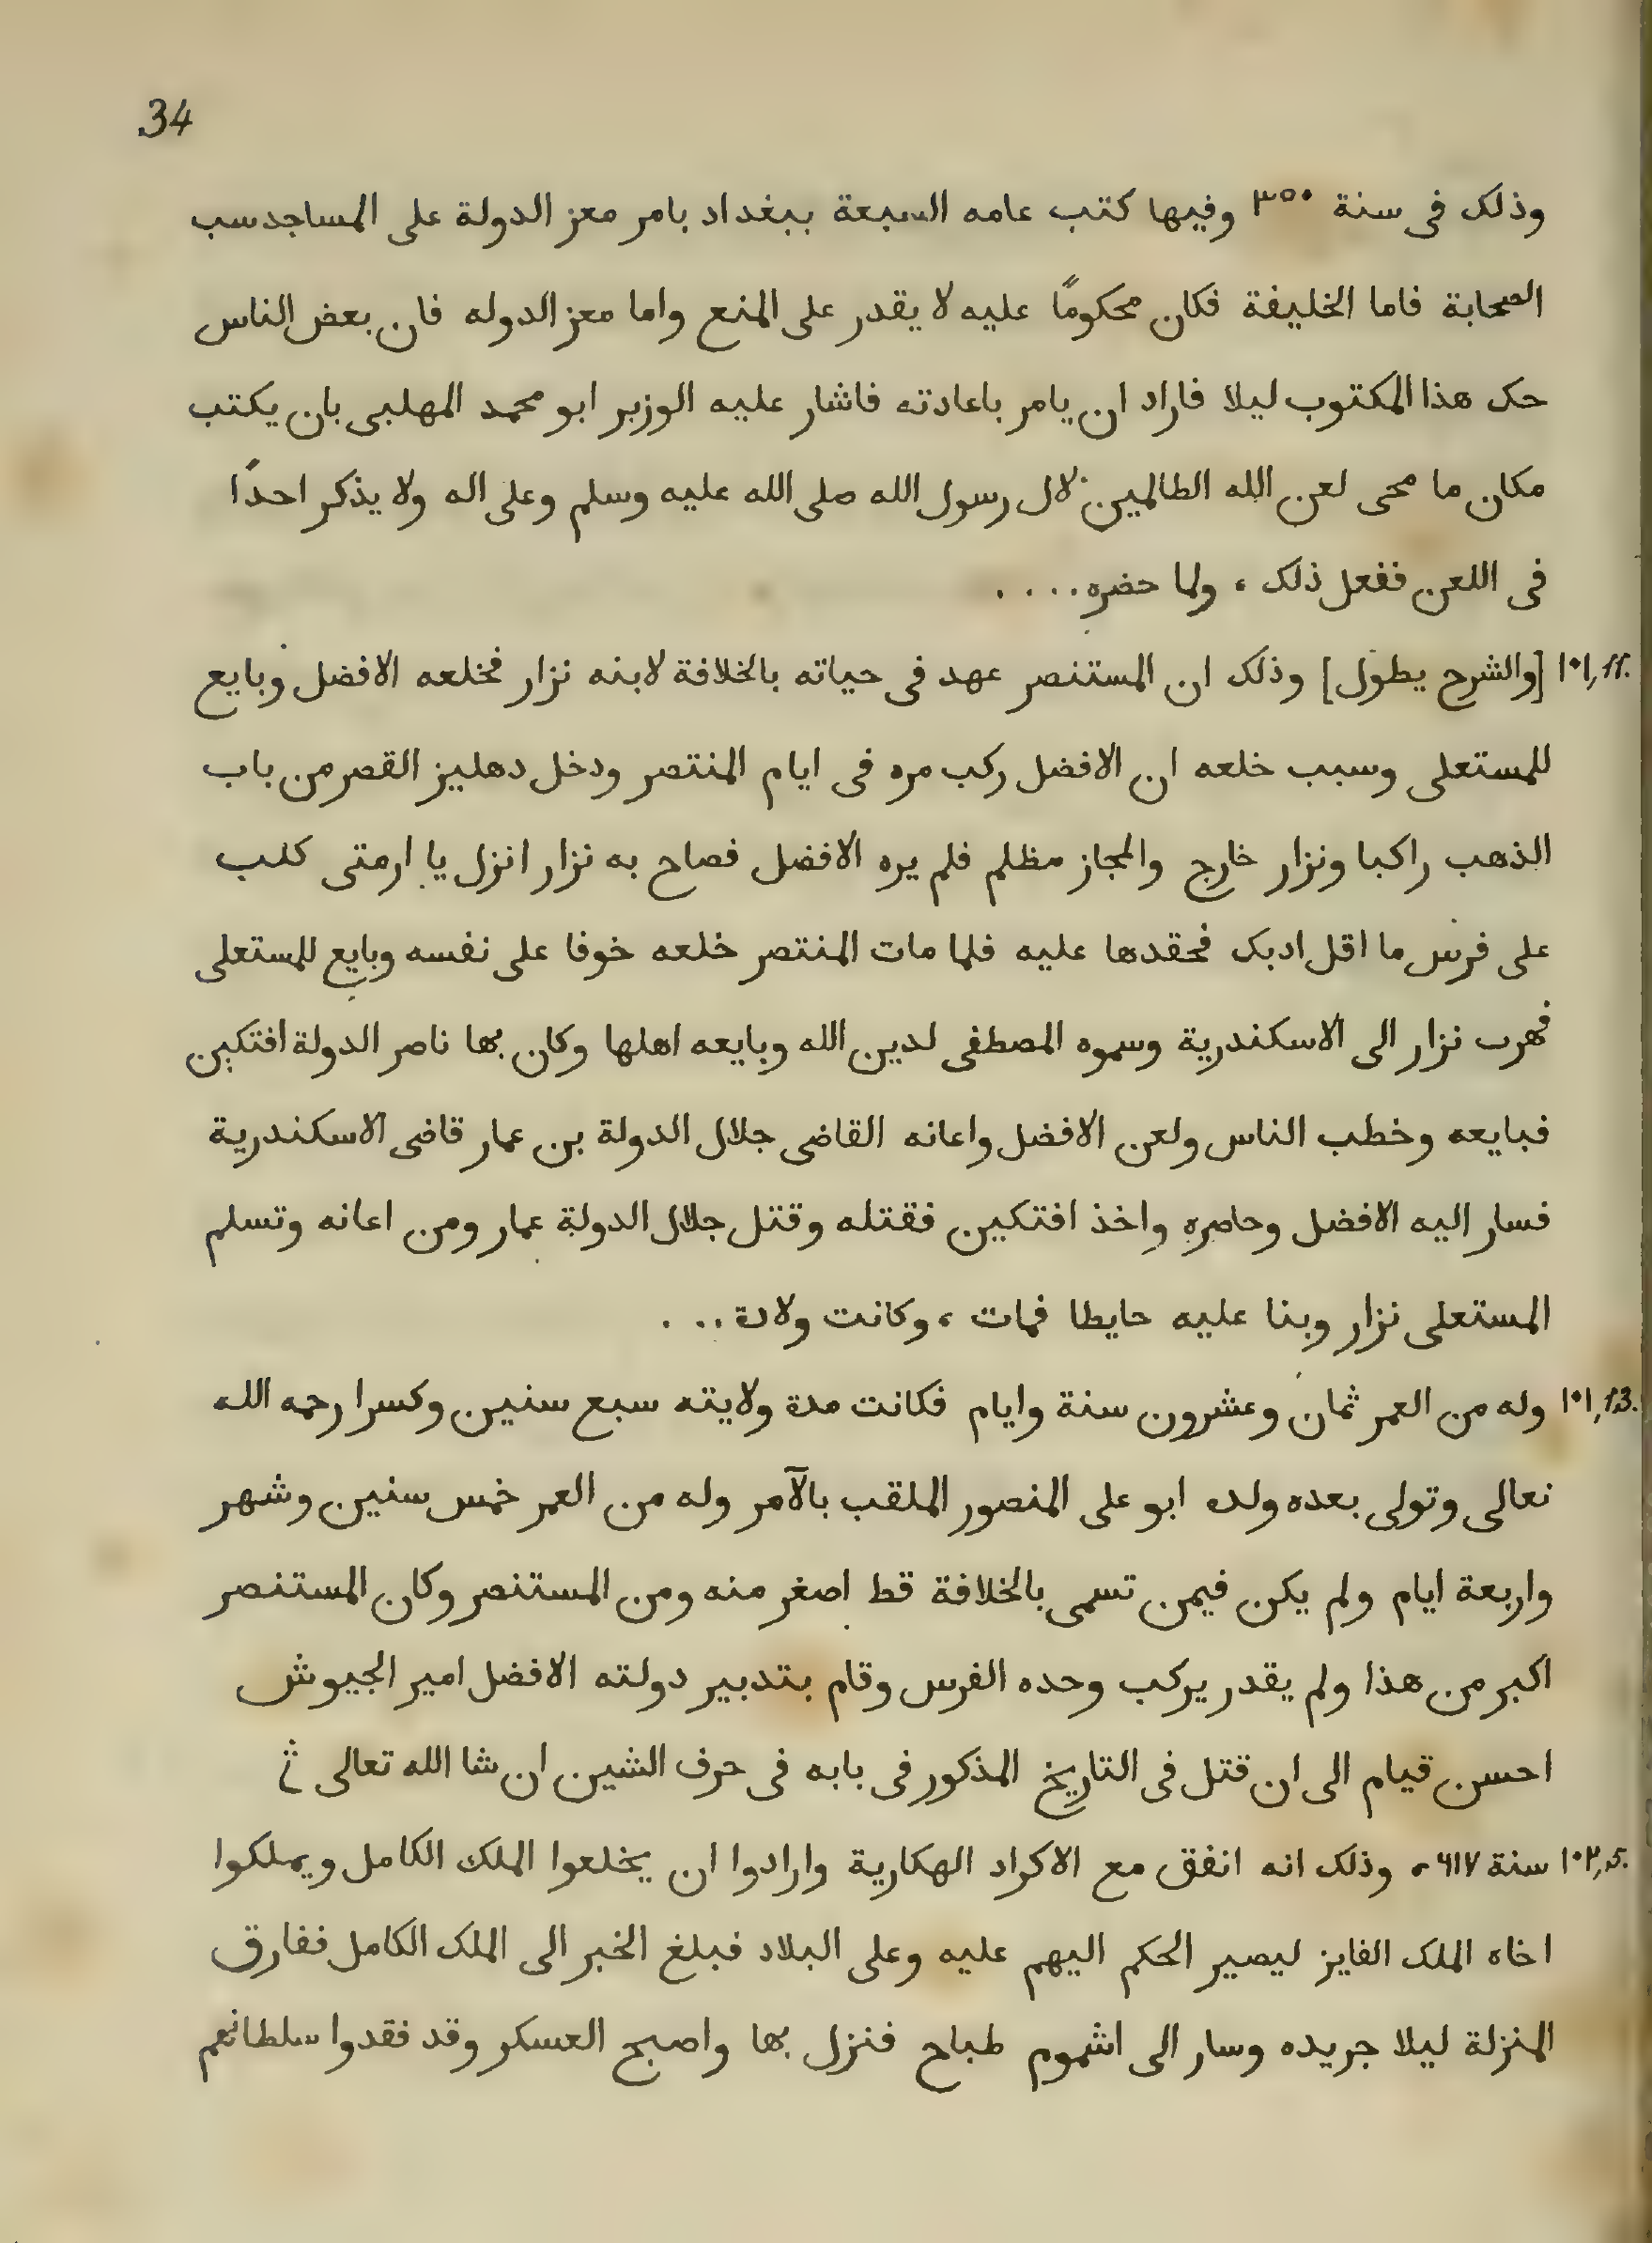 34
وذلك فى سنة ٣٥٠ وفيها كتب عامه السيعة ببغداد بامر معز الدولة على المساجد سب
الصحابة فاما الخليفة فكان محكومًا عليه لا يقدر على المنع واما معز الدوله فان بعض الناس
حك هذا المكتوب ليلا فاراد ان يامر باعادته فاشار عليه الوزير ابو محمد المهلبى بان يكتب
مكان ما محى لعن الله الظالمين لال رسول الله صلى الله عليه وسلم وعلى اله ولا يذكر احدًا
فى اللعن ففعل ذلك ، ولما حضره . . . .
١٠١,11. [والشرح يطول] وذلك ان المستنصر عهد فى حياته بالخلافة لابنه نزار فخلعه الافضل وبايع
للمستعلى وسبب خلعه ان الافضل ركب مره فى ايام المنتصر ودخل دهليز القصر من باب
الذهب راكبا ونزار خارج والمجاز مظلم فلم يره الافضل فصاح به نزار انزل يا ارمتى كلب
على فرس ما اقل ادبك فحقدها عليه فلما مات المنتصر خلعه خوفا على نفسه وبايع للمستعلى
فهرب نزار الى الاسكندرية وسموه المصطفى لدين الله وبايعه اهلها وكان بها ناصر الدولة افتكين
فبايعه وخطب الناس ولعن الافضل واعانه القاضى جلال الدولة بن عمار قاضى الاسكندرية
فسار اليه الافضل وحاصره واخذ افتكين فقتله وقتل جلال الدولة عمار ومن اعانه وتسلم
المستعلى نزار وبنا عليه حايطا فمات ، وكانت ولادة . . .
١٠١,13. وله من العمر ثمان وعشرون سنة وايام فكانت مدة ولايته سبع سنين وكسرا رحمه الله
تعالى وتولى بعده ولده ابو على المنصور الملقب بالآمر وله من العمر خمس سنين وشهر
واربعة ايام ولم يكن فيمن تسمى بالخلافة قط اصغر منه ومن المستنصر وكان المستنصر
اكبر من هذا ولم يقدر يركب وحده الفرس وقام بتدبير دولته الافضل امير الجيوش
احسن قيام الى ان قتل فى التاريخ المذكور فى بابه فى حرف الشين ان شا الله تعالى
١٠٢,5. سنة ٦١٧ ، وذلك انه اتفق مع الاكراد الهكارية وارادوا ان يخلعوا الملك الكامل ويملكوا
اخاه الملك الفايز ليصير الحكم اليهم عليه وعلى البلاد فبلغ الخبر الى الملك الكامل ففارق
المنزلة ليلا جريده وسار الى اشموم طباح فنزل بها واصبح العسكر وقد فقدوا سلطانهم